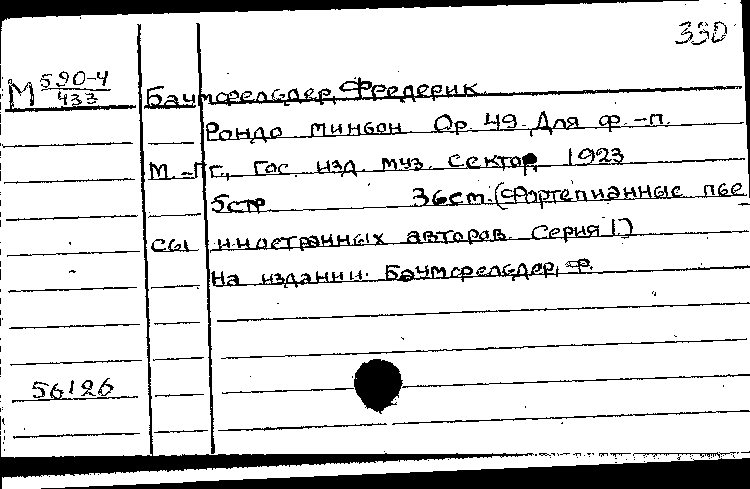 330
М 590-4/433
Баумфельдер, Фредерик
Рондо миньон Ор. 49. Для ф.-п.
М.-Пг., Гос. изд. муз. сектор, 1923
5стр 36cm. (Фортепианные пье
сы иностранных авторов. Серия I.)
На издании: Баумфельдер, Ф.
56126